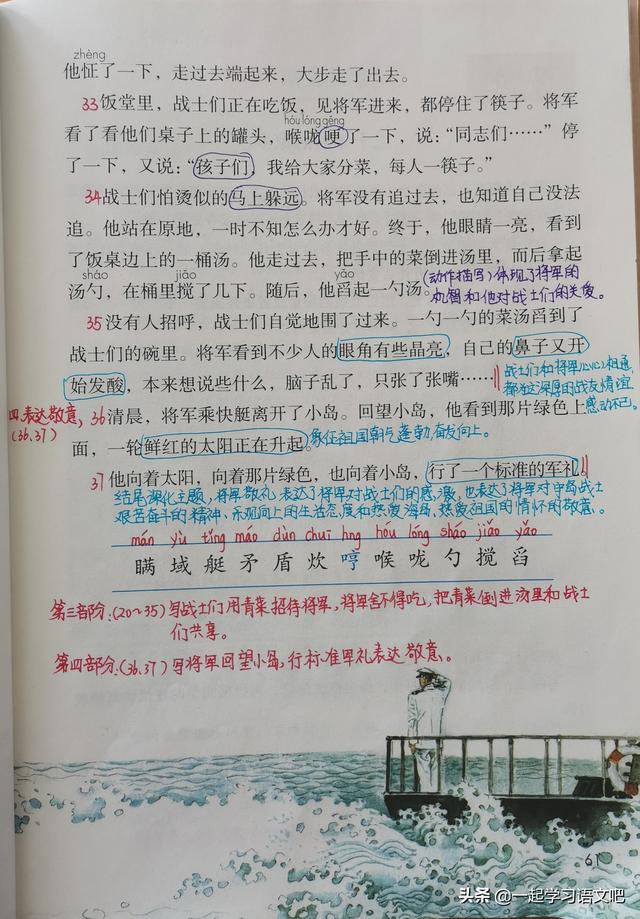 zhèng
他怔了一下，走过去端起来，大步走了出去。
33饭堂里，战士们正在吃饭，见将军进来，都停住了筷子。将军
hóu lóng gěng
看了看他们桌子上的罐头，喉咙哽了一下，说：“同志们……”停
了一下，又说：“孩子们，我给大家分菜，每人一筷子。”
34战士们怕烫似的马上躲远。将军没有追过去，也知道自己没法
追。他站在原地，一时不知怎么办才好。终于，他眼睛一亮，看到
了饭桌边上的一桶汤。他走过去，把手中的菜倒进汤里，而后拿起
sháo jiǎo yǎo
汤勺，在桶里搅了几下。随后，他舀起一勺汤。
(动作描写)体现了将军的
机智和他对战士们的关爱。
35没有人招呼，战士们自觉地围了过来。一勺一勺的菜汤舀到了
战士们的碗里。将军看到不少人的眼角有些晶亮，自己的鼻子又开
始发酸，本来想说些什么，脑子乱了，只张了张嘴……
战士们和将军心心相通,
都为这深厚的战友情谊
感动不已。
四.表达敬意,
(36、37)
36清晨，将军乘快艇离开了小岛。回望小岛，他看到那片绿色上
面，一轮鲜红的太阳正在升起。
象征祖国朝气蓬勃,奋发向上。
37他向着太阳，向着那片绿色，也向着小岛，行了一个标准的军礼。
结尾深化主题,将军敬礼表达了将军对战士们的感激,也表达了将军对守岛战士
艰苦奋斗的精神、乐观向上的生活态度和热爱海岛、热爱祖国的情怀的敬意。
mán yù tǐng máo dùn chuī hng hóu lóng sháo jiǎo yǎo
瞒 域 艇 矛 盾 炊 哼 喉 咙 勺 搅 舀
第三部分:(20~35)写战士们用青菜招待将军,将军舍不得吃,把青菜倒进汤里和战士
们共享。
第四部分:(36.37)写将军回望小岛,行标准军礼表达敬意。
61
头条 @一起学习语文吧